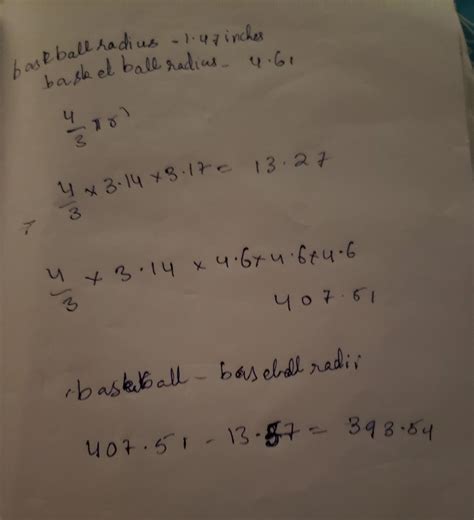 baseball radius - 1.47 inches
basket ball radius - 4.61
4/3 πr³
4/3 × 3.14 × 3.17 = 13.27
4/3 × 3.14 × 4.6 × 4.6 × 4.6
407.51
basketball - baseball radii
407.51 - 13.57 = 393.54